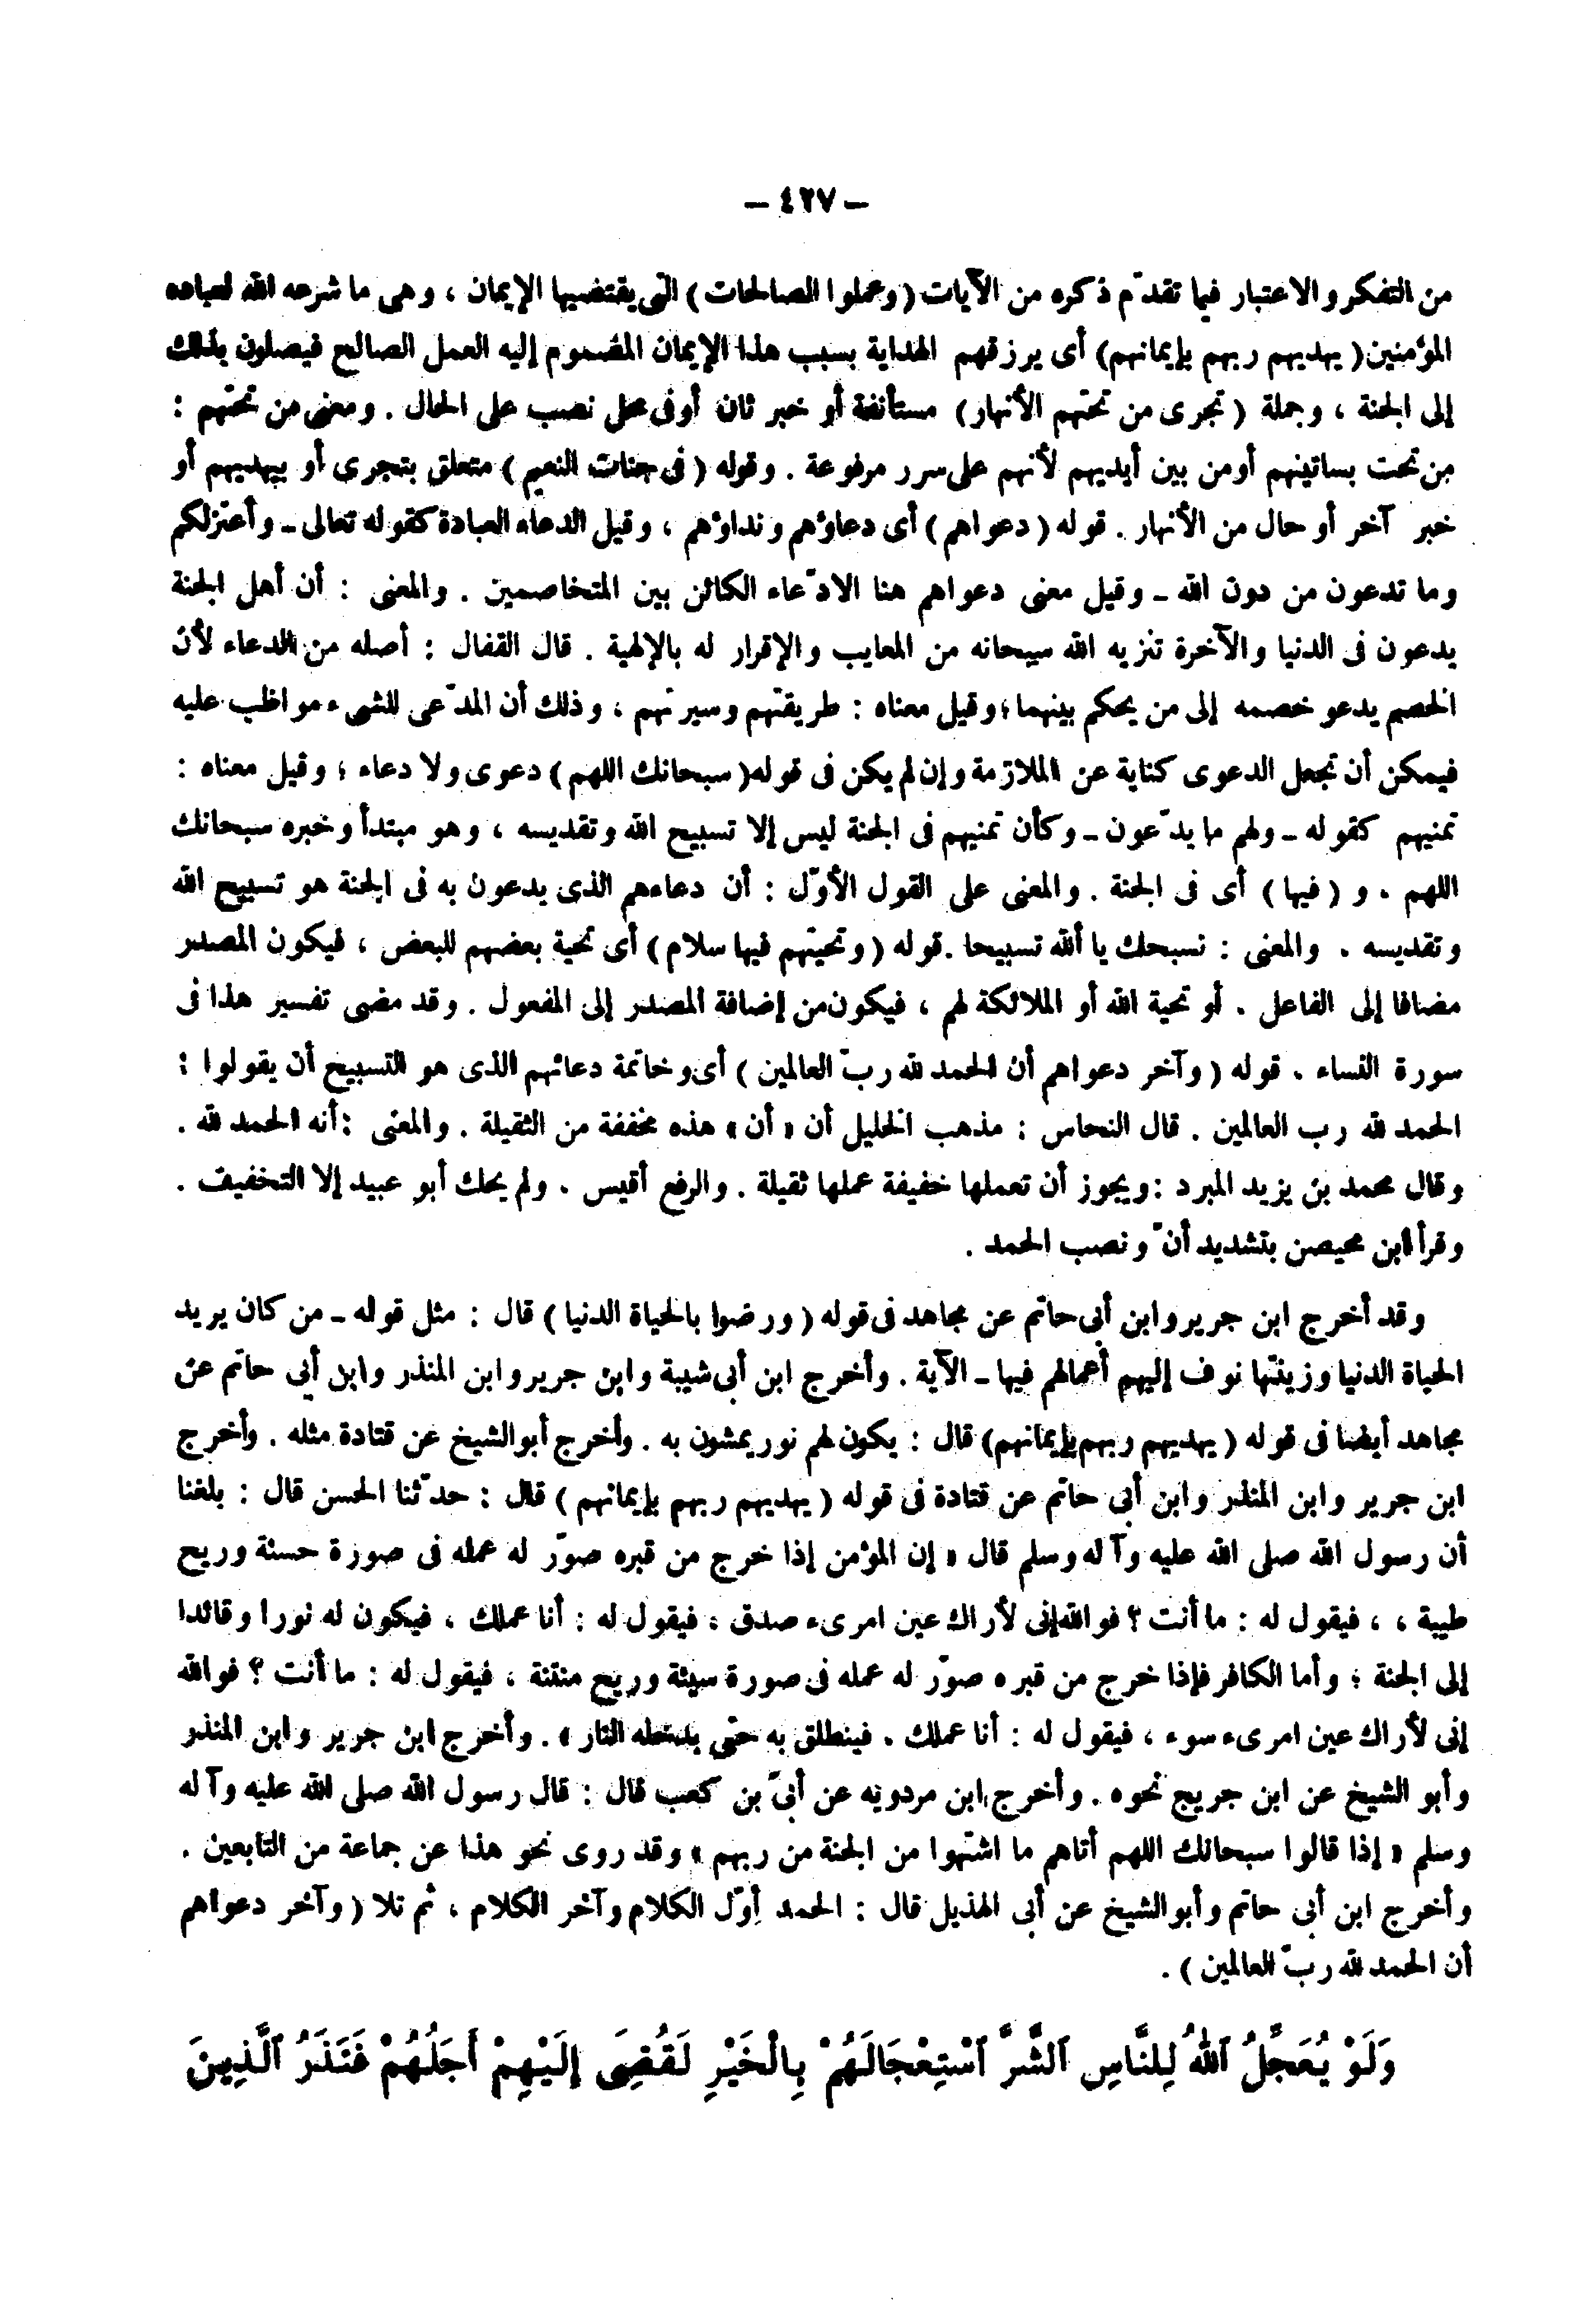 – ٤٢٧ –
من التفكر والاعتبار فيما تقدّم ذكره من الآيات (وعملوا الصالحات) التى يقتضيها الإيمان ، وهى ما شرعه الله لعباده
المؤمنين( يهديهم ربهم بإيمانهم) أى يرزقهم الهداية بسبب هذا الإيمان المضموم إليه العمل الصالح فيصلون بذلك
إلى الجنة ، وجملة ( تجرى من تحتهم الأنهار) مستأنفة أو خبر ثان أوفى محل نصب على الحال . ومعنى من تحتهم :
من تحت بساتينهم أومن بين أيديهم لأنهم على سرر مرفوعة . وقوله ( فى جنات النعيم ) متعلق بتجرى أو بيهديهم أو
خبر آخر أو حال من الأنهار . قوله ( دعواهم ) أى دعاؤهم ونداؤهم ، وقيل الدعاء العبادة كقوله تعالى ـ وأعتزلكم
وما تدعون من دون الله ـ وقيل معنى دعواهم هنا الادّعاء الكائن بين المتخاصمين . والمعنى : أن أهل الجنة
يدعون فى الدنيا والآخرة تنزيه الله سبحانه من المعايب والإقرار له بالإلهية . قال القفال : أصله من الدعاء لأن
الخصم يدعو خصمه إلى من يحكم بينهما ؛ وقيل معناه : طريقتهم وسيرتهم ، وذلك أن المدّعى للشىء مواظب عليه
فيمكن أن تجعل الدعوى كناية عن الملازمة وإن لم يكن فى قوله( سبحانك اللهم ) دعوى ولا دعاء ؛ وقيل معناه :
تمنيهم كقوله ـ ولهم ما يدّعون ـ وكأن تمنيهم فى الجنة ليس إلا تسبيح الله وتقديسه ، وهو مبتدأ وخبره سبحانك
اللهم . و ( فيها ) أى فى الجنة . والمعنى على القول الأوّل : أن دعاءهم الذى يدعون به فى الجنة هو تسبيح الله
وتقديسه . والمعنى : نسبحك يا ألله تسبيحا . قوله ( وتحيتهم فيها سلام ) أى تحية بعضهم للبعض ، فيكون المصدر
مضافا إلى الفاعل . أو تحية الله أو الملائكة لهم ، فيكون من إضافة المصدر إلى المفعول . وقد مضى تفسير هذا فى
سورة النساء . قوله ( وآخر دعواهم أن الحمد لله ربّ العالمين ) أى وخاتمة دعائهم الذى هو التسبيح أن يقولوا :
الحمد لله رب العالمين . قال النحاس : مذهب الخليل أن « أن » هذه مخففة من الثقيلة . والمعنى : أنه الحمد لله .
وقال محمد بن يزيد المبرد : ويجوز أن تعملها خفيفة عملها ثقيلة . والرفع أقيس . ولم يحك أبو عبيد إلا التخفيف .
وقرأ ابن محيصن بتشديد أنّ ونصب الحمد .
وقد أخرج ابن جرير وابن أبى حاتم عن مجاهد فى قوله ( ورضوا بالحياة الدنيا ) قال : مثل قوله ـ من كان يريد
الحياة الدنيا وزينتها نوف إليهم أعمالهم فيها ـ الآية . وأخرج ابن أبى شيبة وابن جرير وابن المنذر وابن أبى حاتم عن
مجاهد أيضا فى قوله ( يهديهم ربهم بإيمانهم) قال : يكون لهم نور يمشون به . وأخرج أبوالشيخ عن قتادة مثله . وأخرج
ابن جرير وابن المنذر وابن أبى حاتم عن قتادة فى قوله ( يهديهم ربهم بإيمانهم ) قال : حدّثنا الحسن قال : بلغنا
أن رسول الله صلى الله عليه وآله وسلم قال « إن المؤمن إذا خرج من قبره صوّر له عمله فى صورة حسنة وريح
طيبة ، ، فيقول له : ما أنت ؟ فوالله إنى لأراك عين امرىء صدق ، فيقول له : أنا عملك ، فيكون له نورا وقائدا
إلى الجنة ؛ وأما الكافر فإذا خرج من قبره صوّر له عمله فى صورة سيئة وريح منتنة ، فيقول له : ما أنت ؟ فوالله
إنى لأراك عين امرىء سوء ، فيقول له : أنا عملك . فينطلق به حتى يدخله النار » . وأخرج ابن جرير وابن المنذر
وأبو الشيخ عن ابن جريج نحوه . وأخرج ابن مردويه عن أبىّ بن كعب قال : قال رسول الله صلى الله عليه وآله
وسلم « إذا قالوا سبحانك اللهم أتاهم ما اشتهوا من الجنة من ربهم » وقد روى نحو هذا عن جماعة من التابعين .
وأخرج ابن أبى حاتم وأبوالشيخ عن أبى الهذيل قال : الحمد أوّل الكلام وآخر الكلام ، ثم تلا ( وآخر دعواهم
أن الحمد لله ربّ العالمين ) .
وَلَوْ يُعَجِّلُ ٱللَّهُ لِلنَّاسِ ٱلشَّرَّ ٱسْتِعْجَالَهُمْ بِالْخَيْرِ لَقُضِىَ إِلَيْهِمْ أَجَلُهُمْ فَنَذَرُ ٱلَّذِينَ